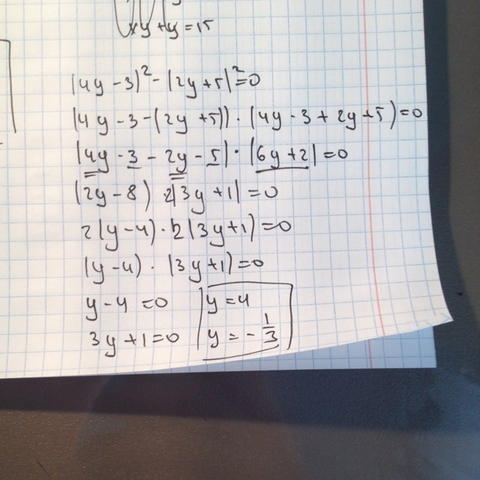 xy+y=15
(4y-3)²-(2y+5)²=0
(4y-3-(2y+5))·(4y-3+2y+5)=0
(4y-3-2y-5)·(6y+2)=0
(2y-8) 2(3y+1)=0
2(y-4)·2(3y+1)=0
(y-4)·(3y+1)=0
y-4=0 y=4
3y+1=0 y=-1/3